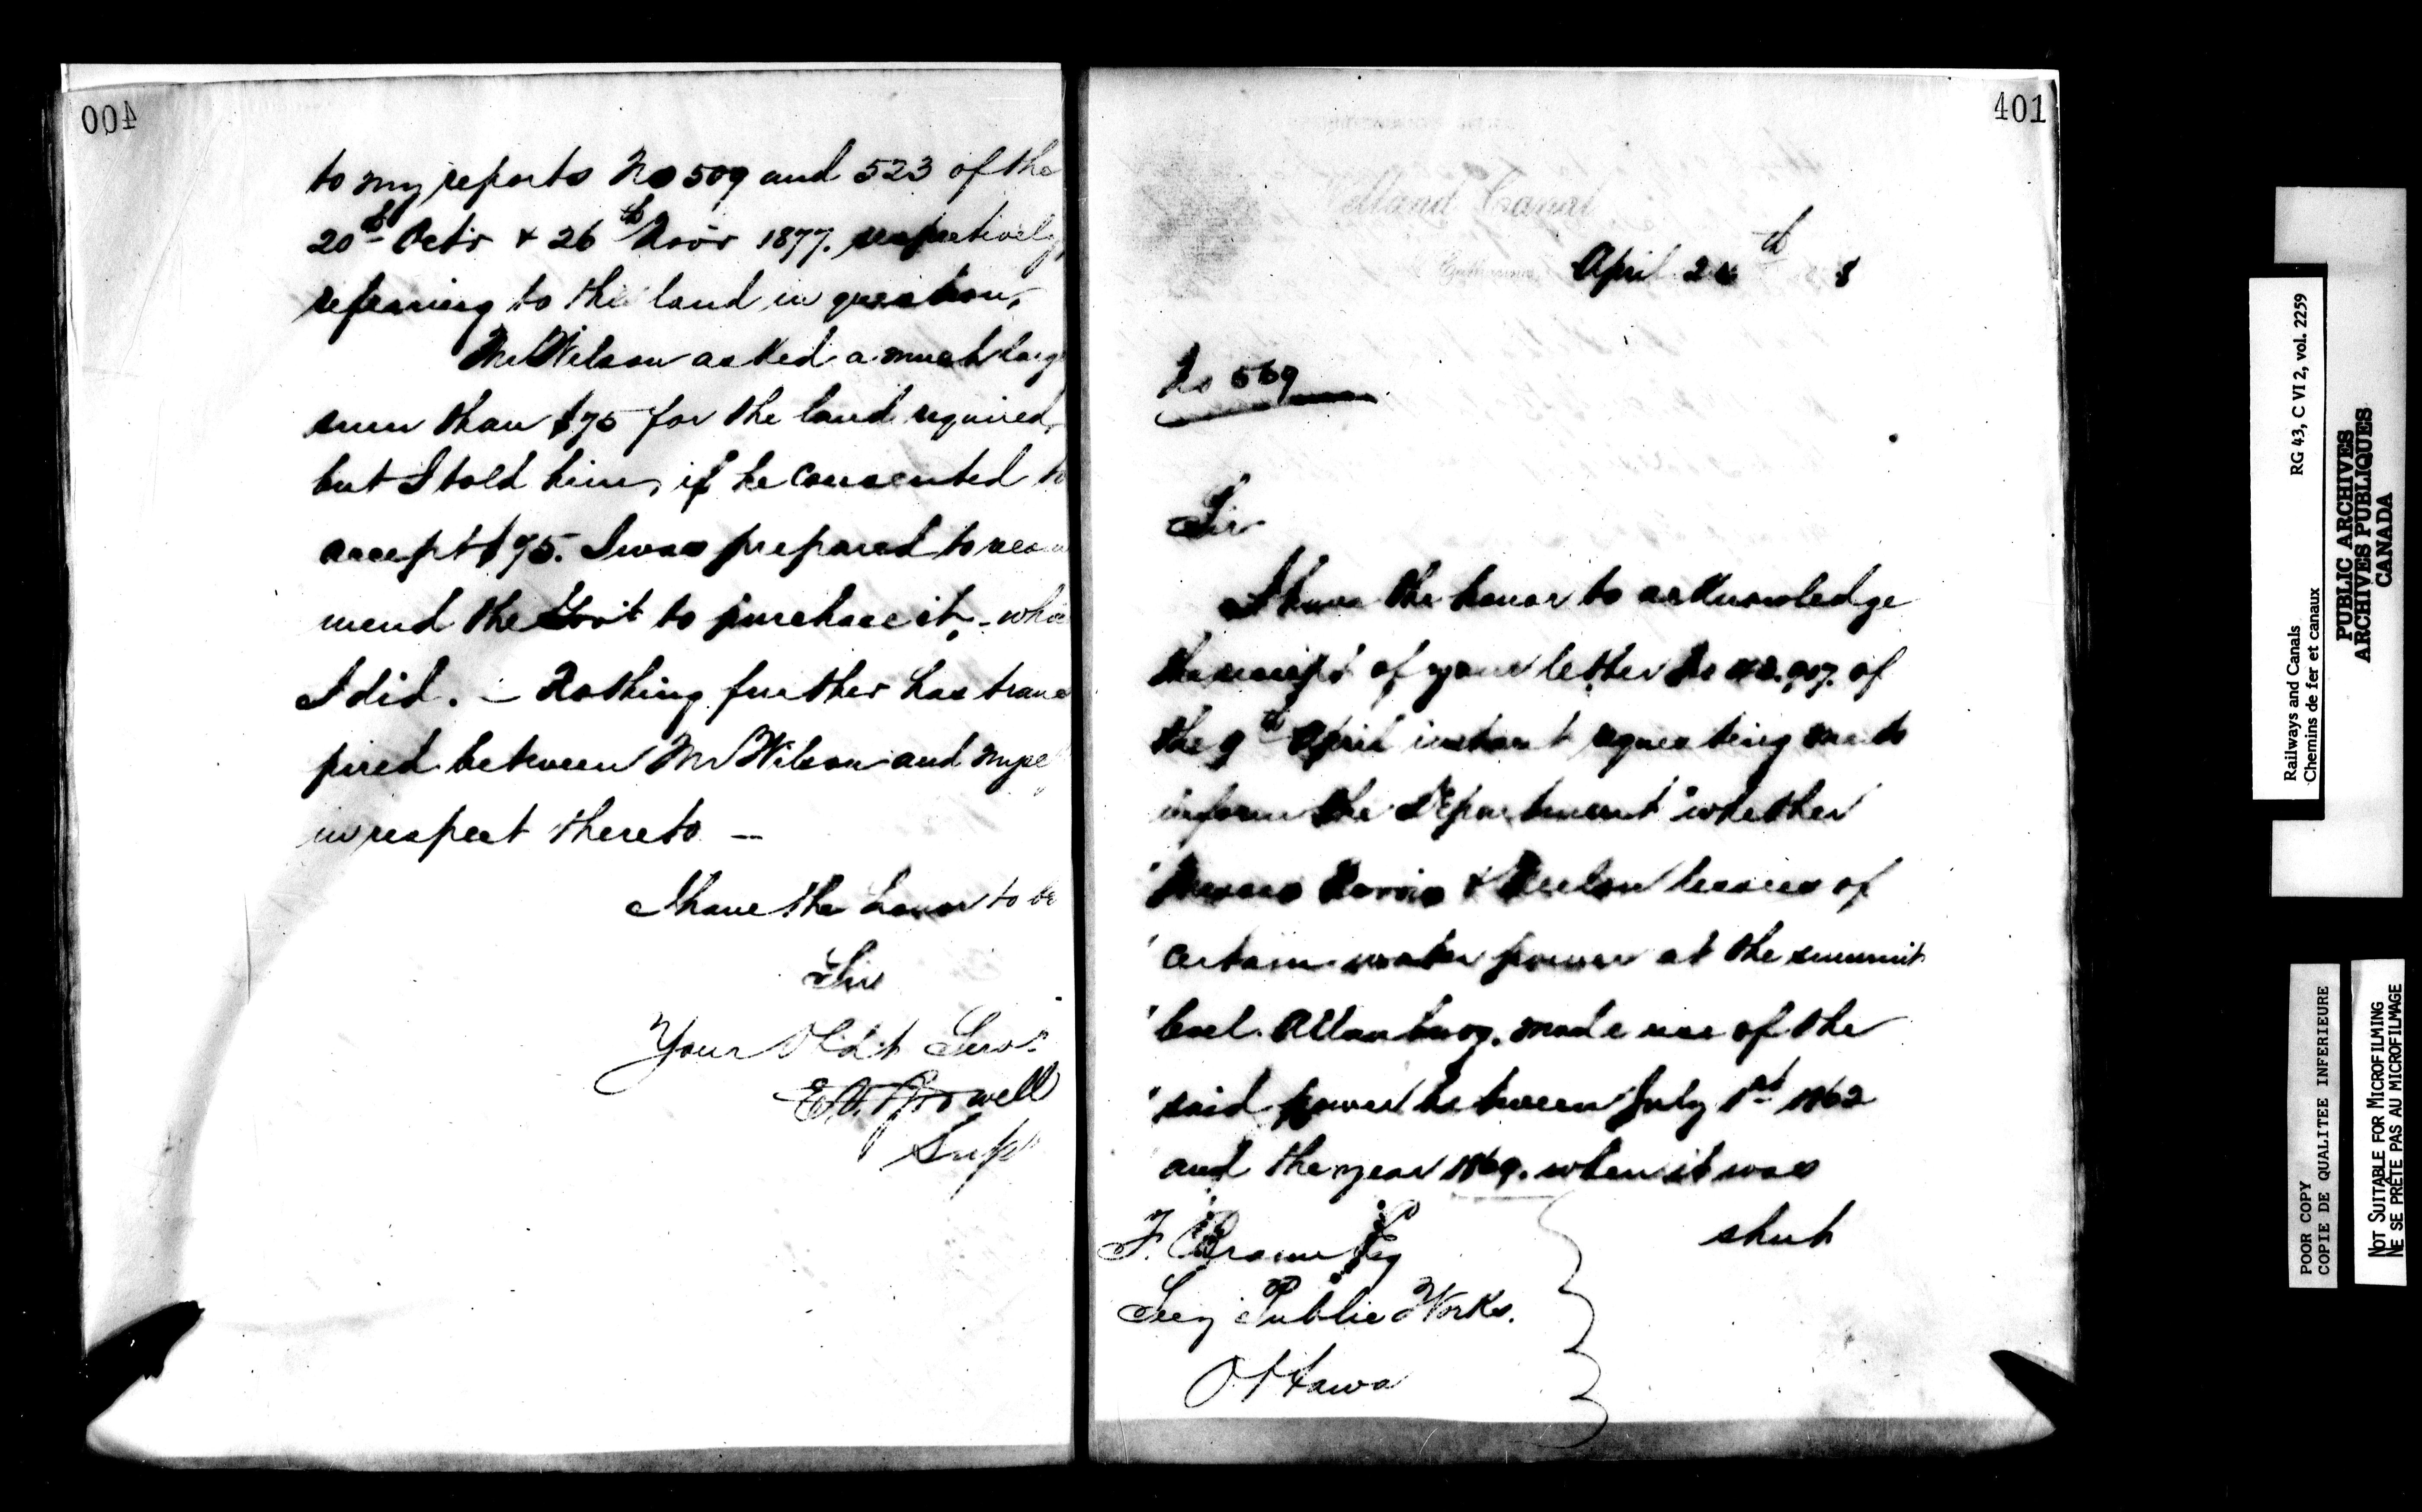 400
to my reports No 509 and 523 of the
20th Octr & 26th Novr 1877. respectively,
referring to the land in question,
Mr Wilson asked a much larg
sum than $75 for the land required,
but I told him, if he consented to
accept $75. I was prepared to recom
mend the Govt to purchase it, - whic
I did. - Nothing further has trans
pired between Mr Wilson and myse
in respect thereto -
I have the honor to be
Sir
Your Obdt Servt
Supt
401
elland Canal
April 24th 8
No 569
Sir
I have the honor to acknowledge
the receipt of your letter No of
the 9th April instant requesting me to
inform the Department "whether
" Messrs & lessees of
" certain water power at the summit
" level. Allanburg. made use of the
" said power between July 1st 1862
and the year 1869. when it was
shut
F. Braun Esq
Secy Public Works.
Ottawa
Railways and Canals RG 43, C VI 2, vol. 2259
Chemins de fer et canaux
PUBLIC ARCHIVES
ARCHIVES PUBLIQUES
CANADA
POOR COPY
COPIE DE QUALITEE INFERIEURE
NOT SUITABLE FOR MICROFILMING
NE SE PRÊTE PAS AU MICROFILMAGE